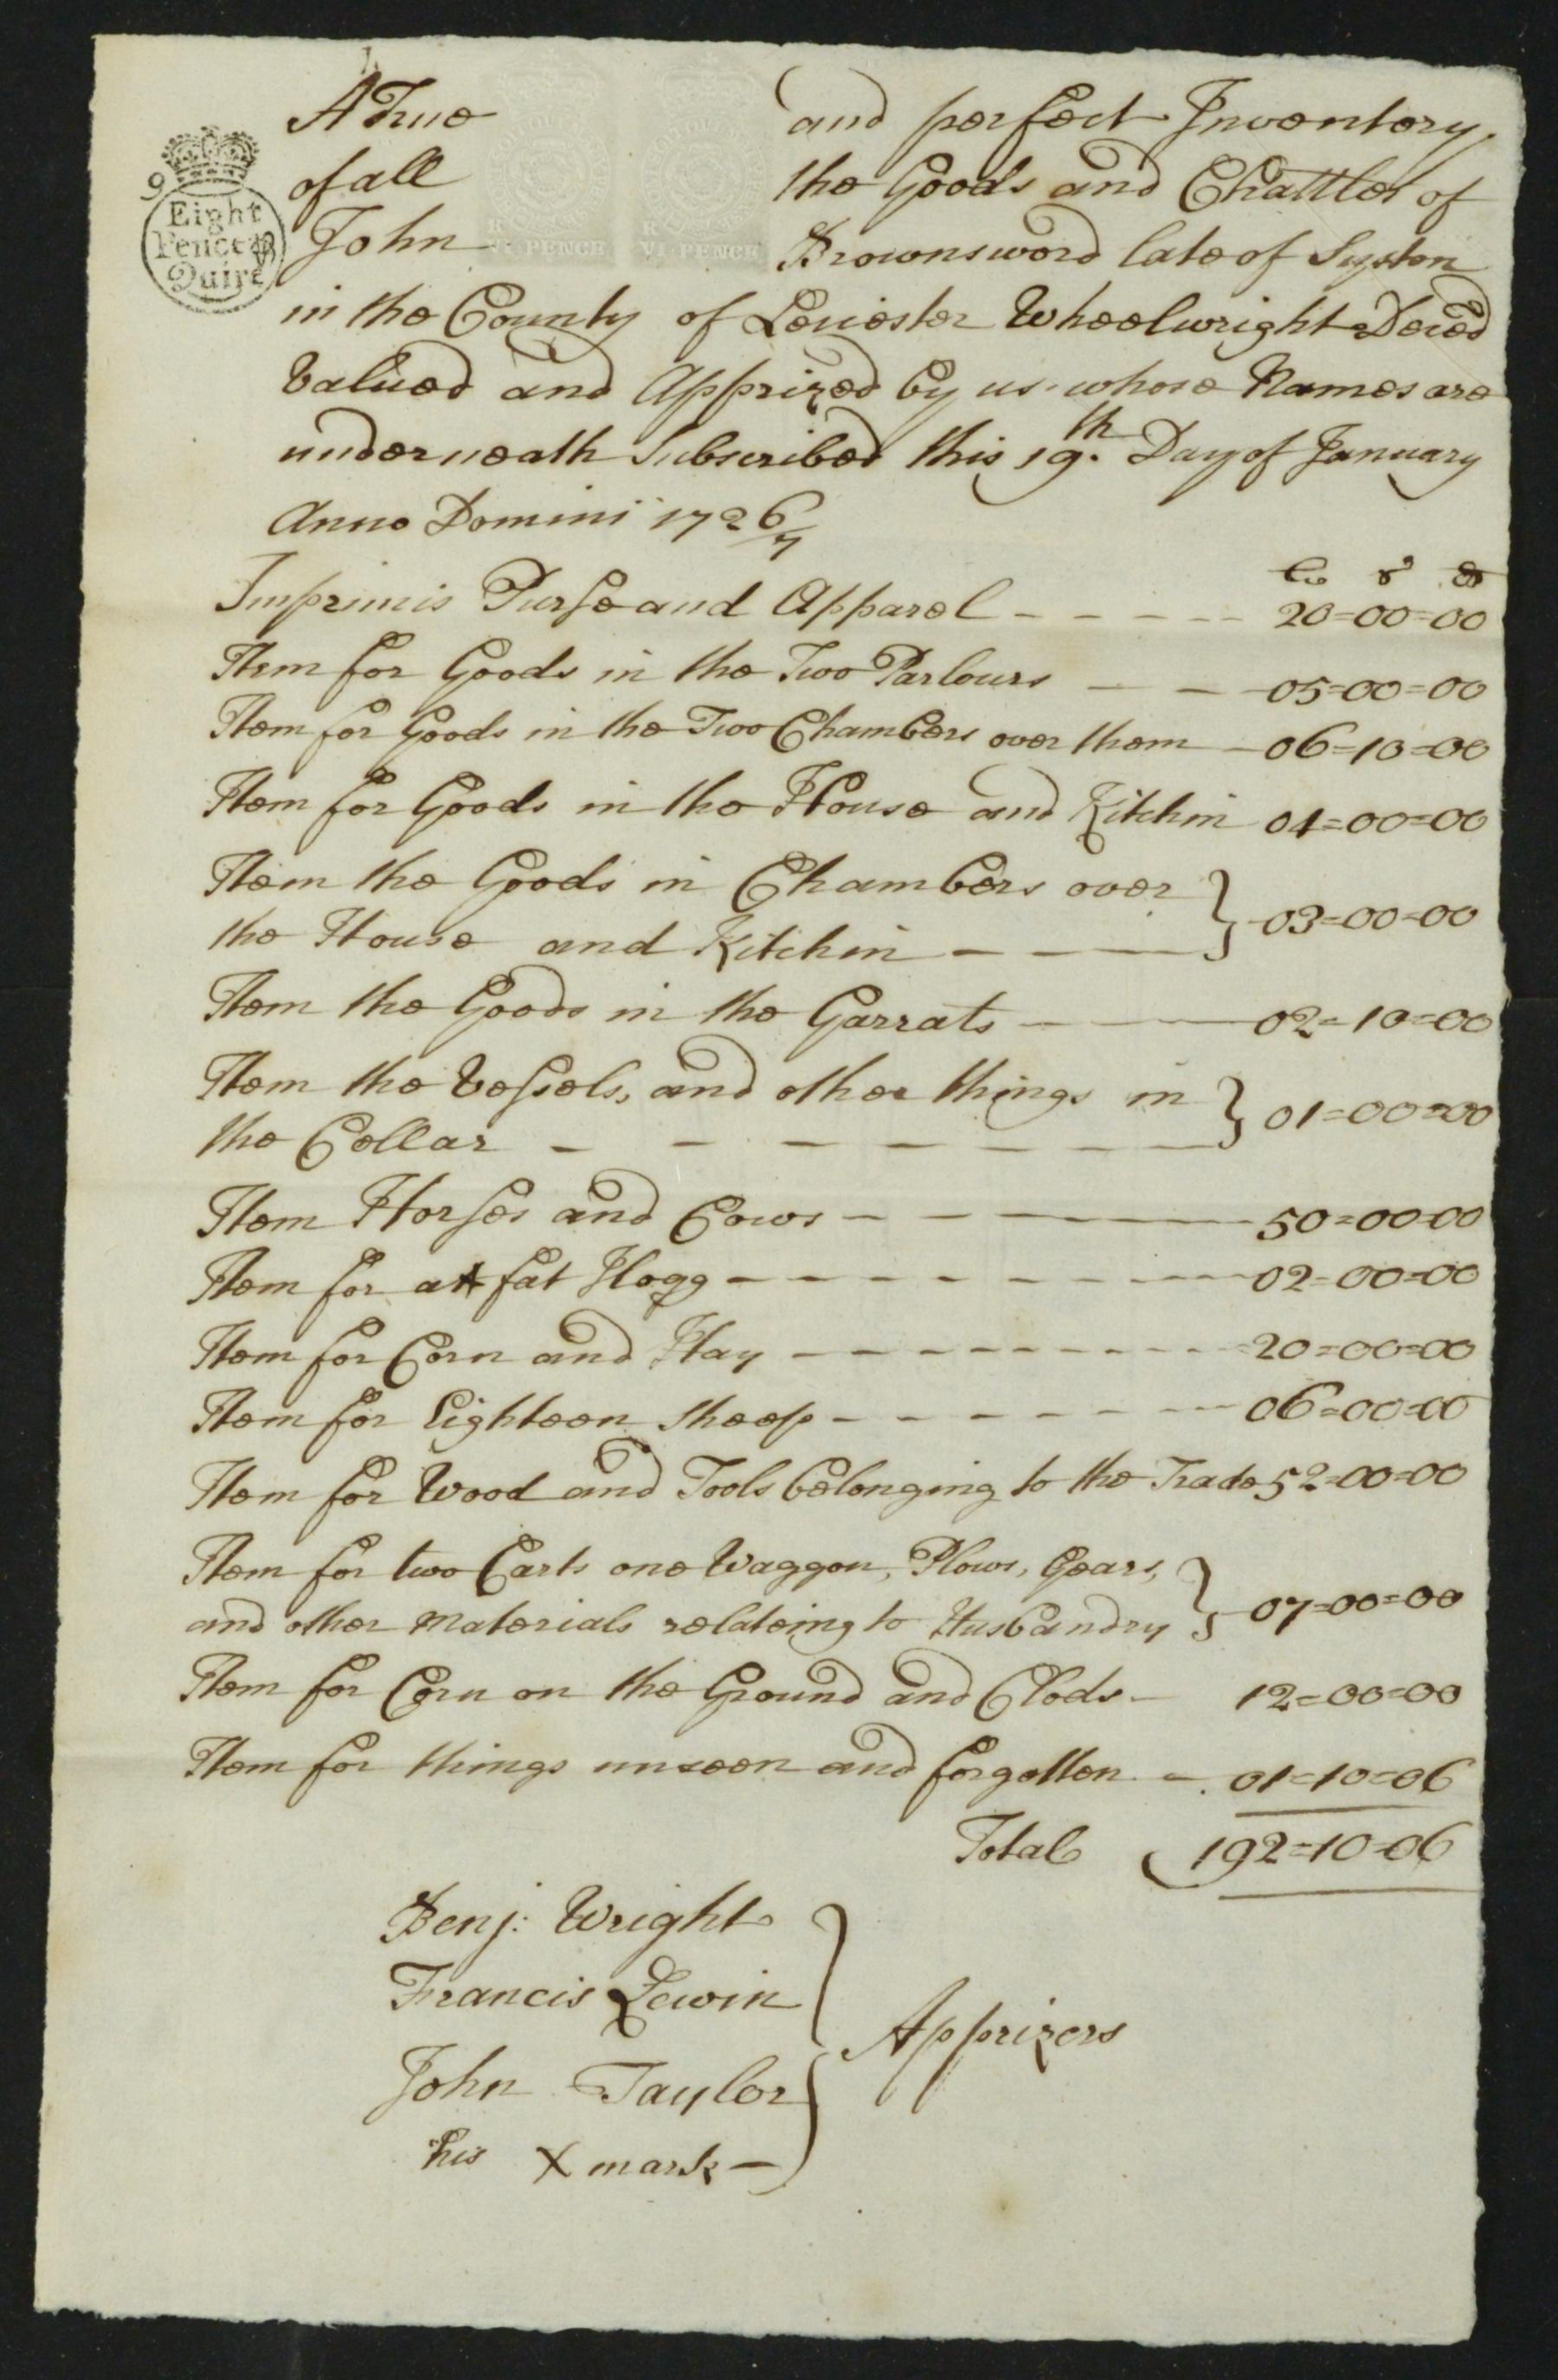 A True and perfect Inventory
of all the Goods and Chattles of
John Brownsword late of Syston
in the County of Leicester Wheelwright Deced
Valued and Apprized by us whose Names are
underneath Subscribed this 19th Day of January
Anno Domini 1726/7
li s d
Imprimis Purse and Apparel - - - - - 20=00=00
Item for Goods in the Two Parlours - - 05=00=00
Item for Goods in the Two Chambers over them - 06=10=00
Item for Goods in the House and Kitchin 04=00=00
Item the Goods in Chambers over
the House and Kitchin - - - } 03=00=00
Item the Goods in the Garrats - - - 02=10=00
Item the Vessels, and other things in
the Cellar - - - - - - } 01=00=00
Item Horses and Cows - - - - 50=00=00
Item for a fat Hogg - - - - - - - - 02=00=00
Item for Corn and Hay - - - - - - - - 20=00=00
Item for Eighteen sheep - - - - - - - 06=00=00
Item for Wood and Tools belonging to the Trade 52=00=00
Item for two Carts one Waggon, Plows, Gears,
and other Materials relateing to Husbandry } 07=00=00
Item for Corn on the Ground and Clods - 12=00=00
Item for things unseen and forgotten - 01=10=06
Total 192=10=06
Benj: Wright
Francis Lewin
John Taylor
his X mark -
} Apprizers
9
Eight
Pence p
Quire
VI PENCE
VI PENCE